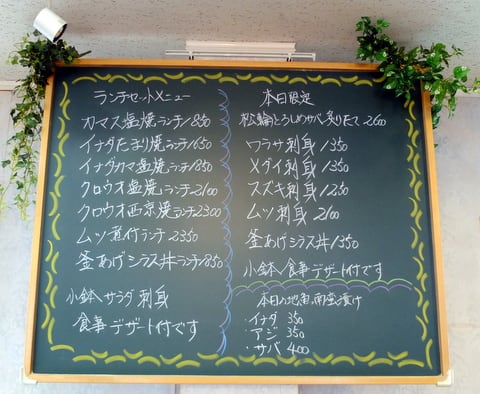 ランチセットメニュー
カマス塩焼ランチ1850
イナダたまり焼ランチ1650
イナダカマ塩焼ランチ1850
クロウオ塩焼ランチ2100
クロウオ西京焼ランチ2300
ムツ煮付ランチ2350
釜あげシラス丼ランチ1850
小鉢 サラダ 刺身
食事 デザート付です
本日限定
松輪とろしめサバ炙りたて2600
ワラサ刺身1350
メダイ刺身1350
スズキ刺身1250
ムツ刺身2100
釜あげシラス丼1350
小鉢/食事デザート付です
本日の地魚
・イナダ 350
・アジ 350
・サバ 400